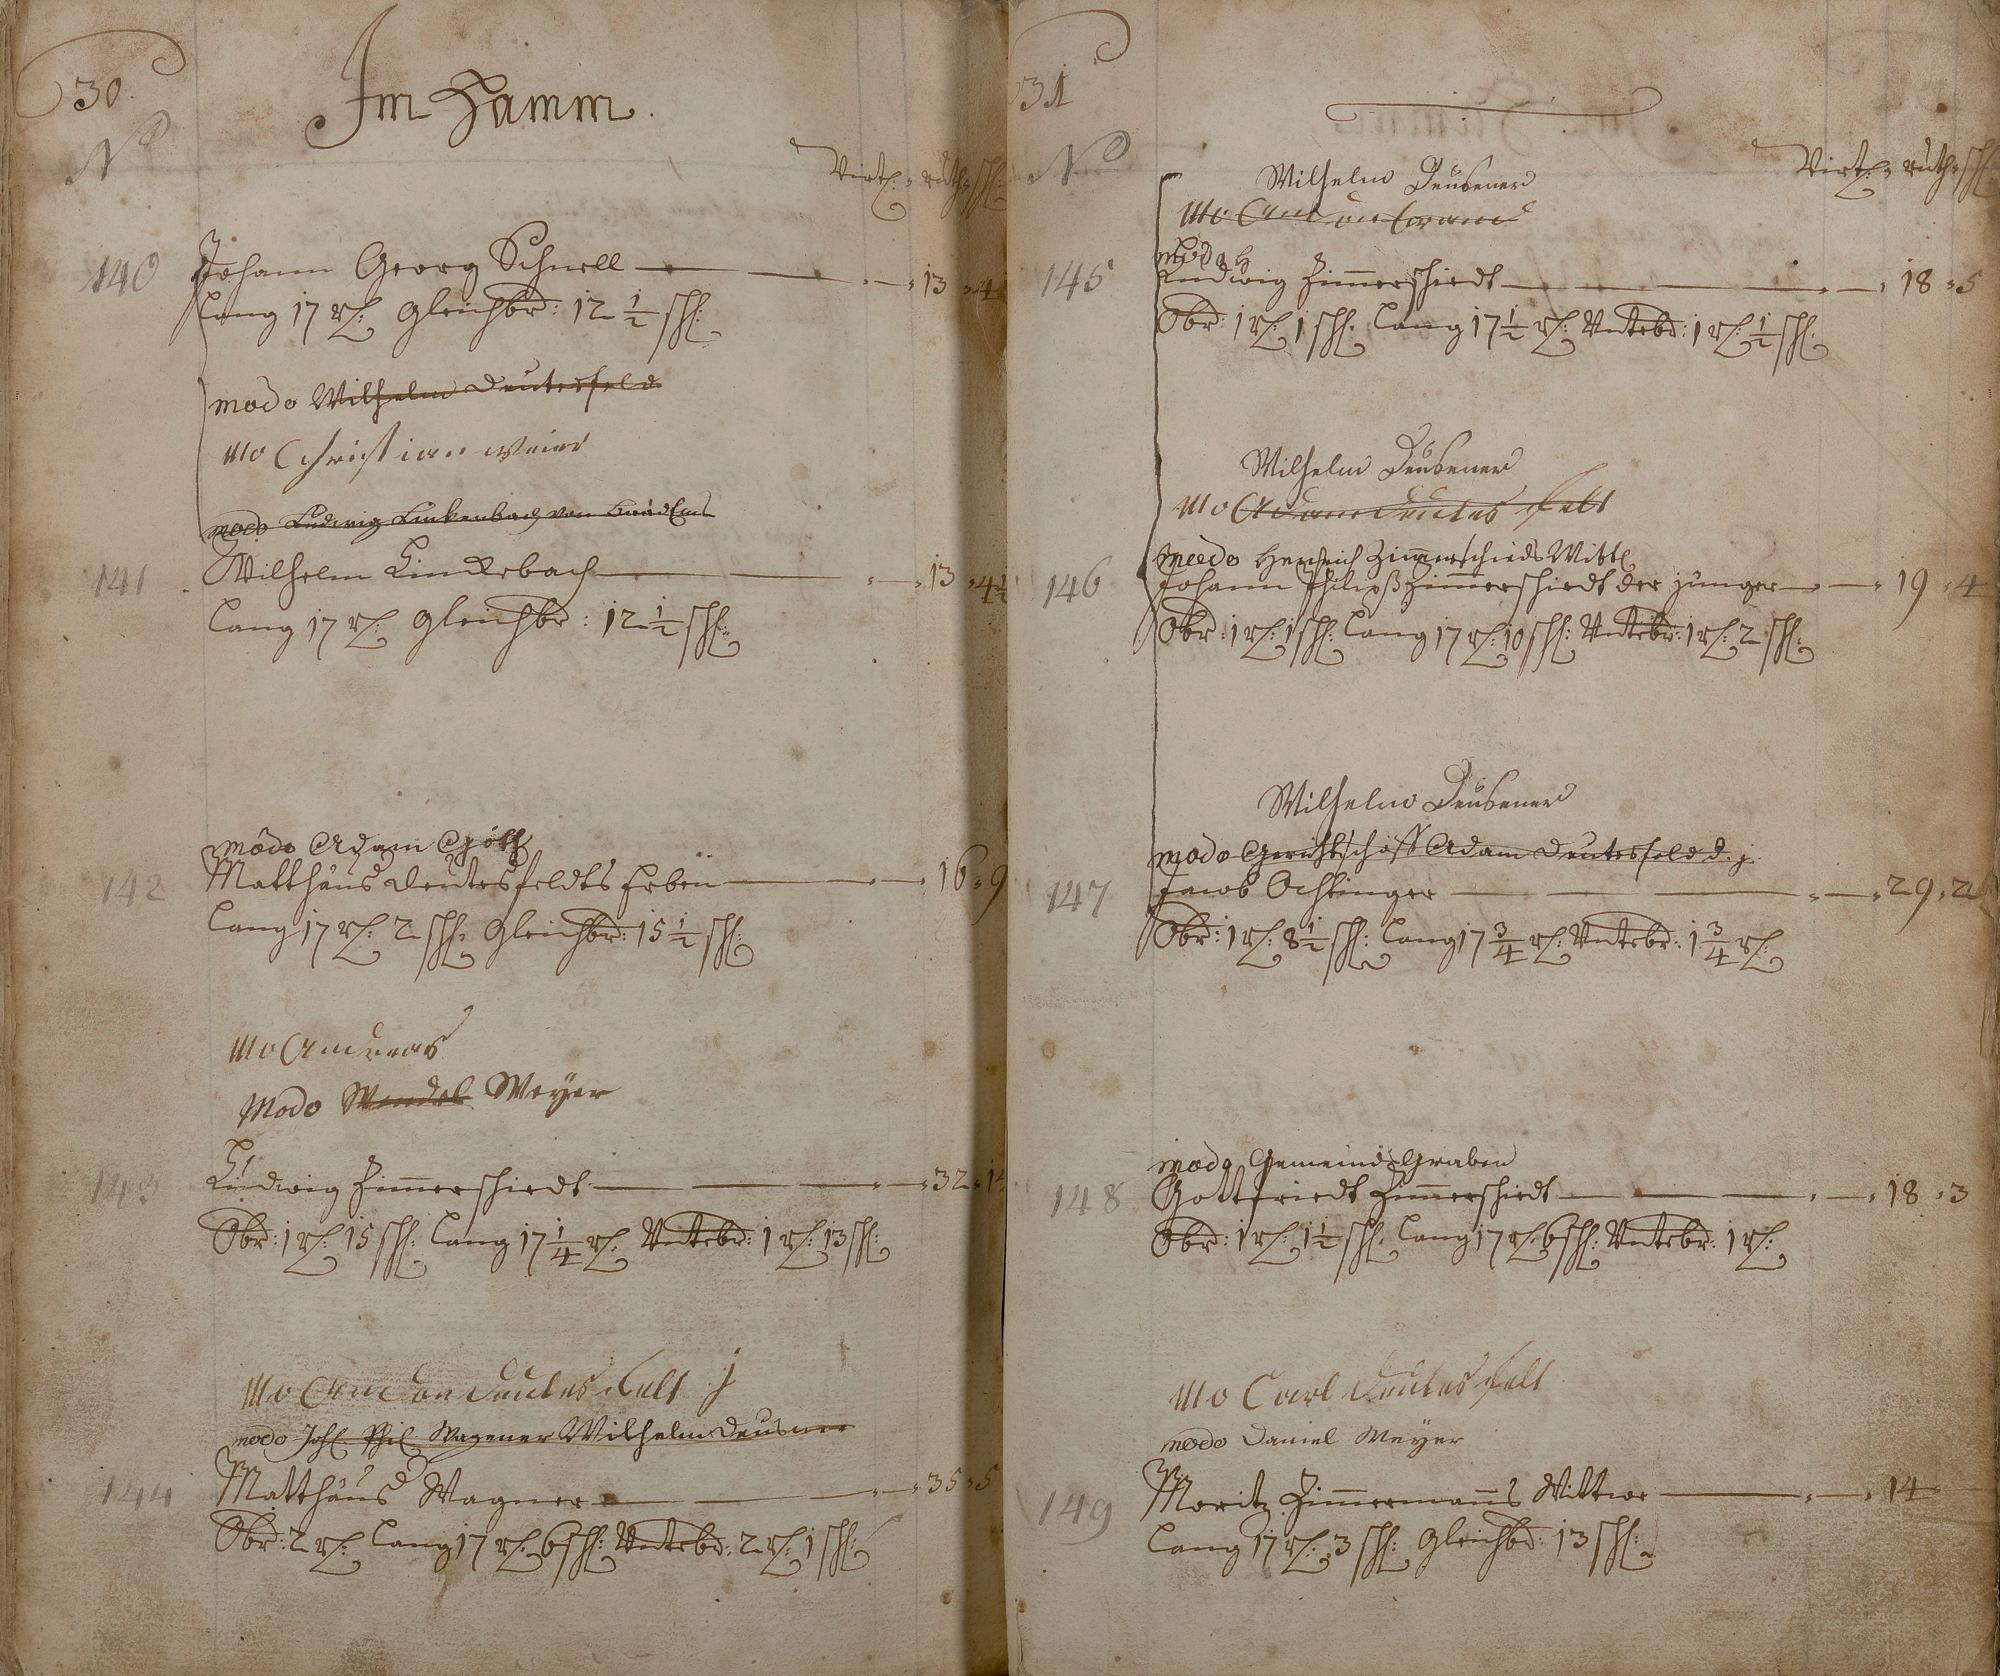 30.
Im Hamm.
No
Virt: ruth schl:
140 Johann Georg Schnell 13 4½
Lang 17 rl: Gleichbr: 12 ½ schl:
modo Wilhelm Deutesfeld
mo Christian weier
modo Ludwig Linkenbach von
141 Wilhelm Linckebach 13 4½
Lang 17 rl: Gleichbr: 12 ½ schl:
modo Adam
142 Matthäus Deutesfeldts Erben 16 9
Lang 17 rl: 2 schl: Gleichbr: 15 ½ schl:
mo Andreas
Modo Wendel Weyer
143 Ludwig Zimmerschiedt 32
Obr: 1 rl: 15 schl: Lang 17 ¼ rl: Untebr: 1 rl: 13 schl:
mo Deutesfelt j
modo Joh: Phil: Wagener Wilhelm Deusner
144 Matthäus Wagner 35 5
Obr: 2 rl: Lang 17 rl: 6 schl: Untebr: 2 rl: 1 schl:
31
No
Virt: ruth schl:
Wilhelm Deusener
mo
modo
145 Ludwig Zimmerschiedt 18 5
Obr: 1 rl: 1 schl: Lang 17 ½ rl: Untebr: 1 rl: ½ schl:
Wilhelm Deusener
mo Adam Deutesfelt
modo Henrich Zimmerschieds Witt:
146 Johann Philipß Zimmerschiedt der junger 19 4
Obr: 1 rl: 1 schl: Lang 17 rl: 10 schl: Untebr: 1 rl: 2 schl:
Wilhelm Deusener
modo Gerichtschöff Adam Deutesfeld d. j.
147 Jacob Ochtinger 29
Obr: 1 rl: 8 ½ schl: Lang 17 ¾ rl: Untebr: 1 ¾ rl:
modo Gemeinds Graben
148 Gottfriedt Zimmerschiedt 18 3
Obr: 1 rl: 1 ½ schl: Lang 17 rl: 6 schl: Untebr: 1 rl:
mo Carl Deutesfelt
modo Daniel Meyer
149 Moritz Zimmermanns Wittwe 14
Lang 17 rl: 3 schl: Gleichbr: 13 schl: